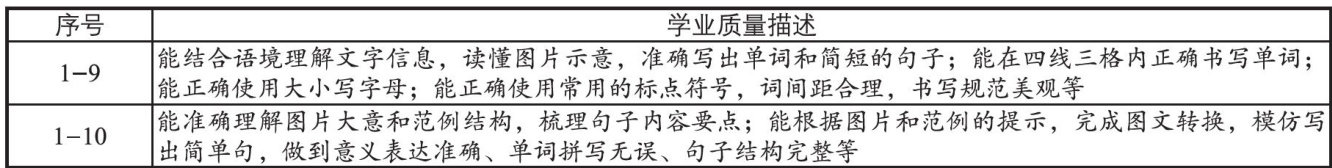 序号 学业质量描述
1-9 能结合语境理解文字信息，读懂图片示意，准确写出单词和简短的句子；能在四线三格内正确书写单词；
能正确使用大小写字母；能正确使用常用的标点符号，词间距合理，书写规范美观等
1-10 能准确理解图片大意和范例结构，梳理句子内容要点；能根据图片和范例的提示，完成图文转换，模仿写
出简单句，做到意义表达准确、单词拼写无误、句子结构完整等